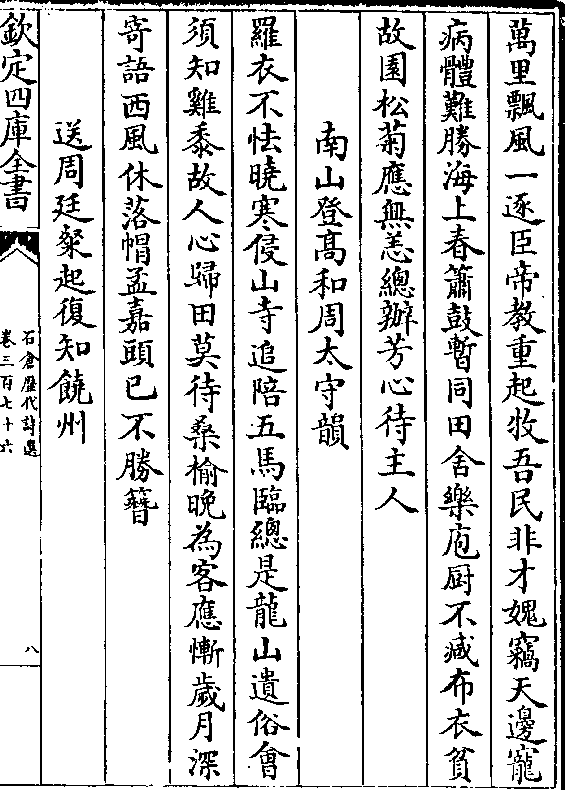 萬里飄風一逐臣帝教重起牧吾民非才媿竊天邊寵
病體難勝海上春簫鼓暫同田舍樂庖厨不減布衣貧
故園松菊應無恙總辦芳心待主人
南山登髙和周太守韻
羅衣不怯曉寒侵山寺追陪五馬臨總是龍山遺俗會
須知雞黍故人心歸田莫待桑榆晩為客應慚歲月深
寄語西風休落帽孟嘉頭已不勝簪
送周廷粲起復知饒州
欽定四庫全書
石倉歴代詩選
卷三百七十六
八